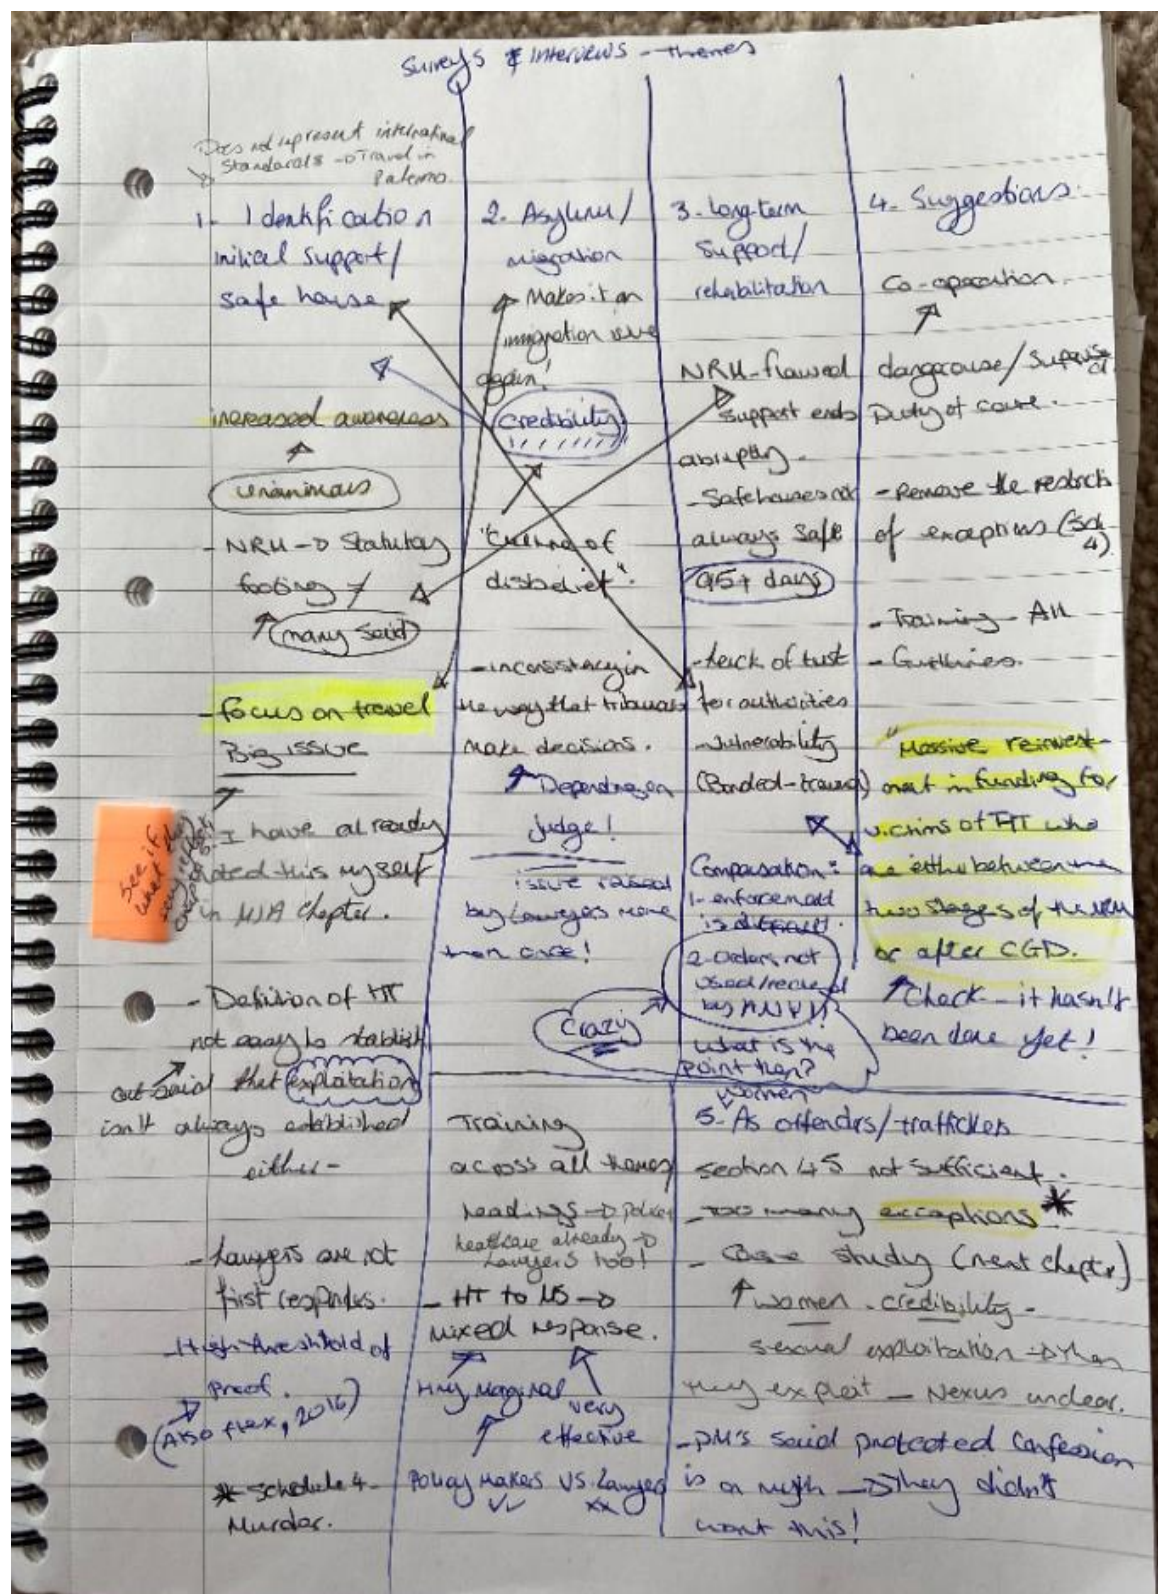 Surveys & Interviews - themes
Does not represent international
Standards -> Travel in
Palermo.
1. Identification
initial support/
safe house
increased awareness
unanimous
- NRM -> Statutory
footing
many said
- Focus on travel
Big issue
I have already
noted this myself
in MSA Chapter.
See if
what they
say
- Definition of HT
not easy to stablish
out said that exploitation
isn't always established
either -
- Lawyers are not
first responders.
- High threshold of
Proof.
(Also flex, 2016)
* Schedule 4 -
Murder.
2. Asylum/
migration
Makes it an
immigration issue
again!
Credibility
"Culture of
disbelief".
- inconsistency in
the way that tribunals
make decisions.
Depending on
judge!
issue raised
by Lawyers more
than once!
Crazy
Training
across all themes/
headings -> police
healthcare already ->
Lawyers too!
- HT to MS ->
mixed response.
marginal
very
effective
Policy Makers VS. Lawyers
3. Long-term
Support/
rehabilitation
NRM - flawed
support ends
abruptly -
- Safe houses not
always safe
(45+ days)
- Lack of trust
for authorities
- Vulnerability
(Bonded - trauma)
Compensation:
1 - enforcement
is difficult.
2 - Orders not
used/
by
What is the
point then?
4. Suggestions.
Co-operation.
dangerouse/
Duty of care.
- Remove the restricts
of exceptions (Sch
4).
- Training - All
- Guidlines.
"Massive reinvest-
ment in funding for
victims of HT who
are either between the
two stages of the NRM
or after CGD.
Check - it hasn't
been done yet!
Women
5. As offenders/traffickers
section 45 not sufficient.
- too many exceptions *
- Case study (next chapter)
women - credibility -
sexual exploitation -> then
they exploit - Nexus unclear.
- PM's said protected confession
is a myth -> They didn't
want this!